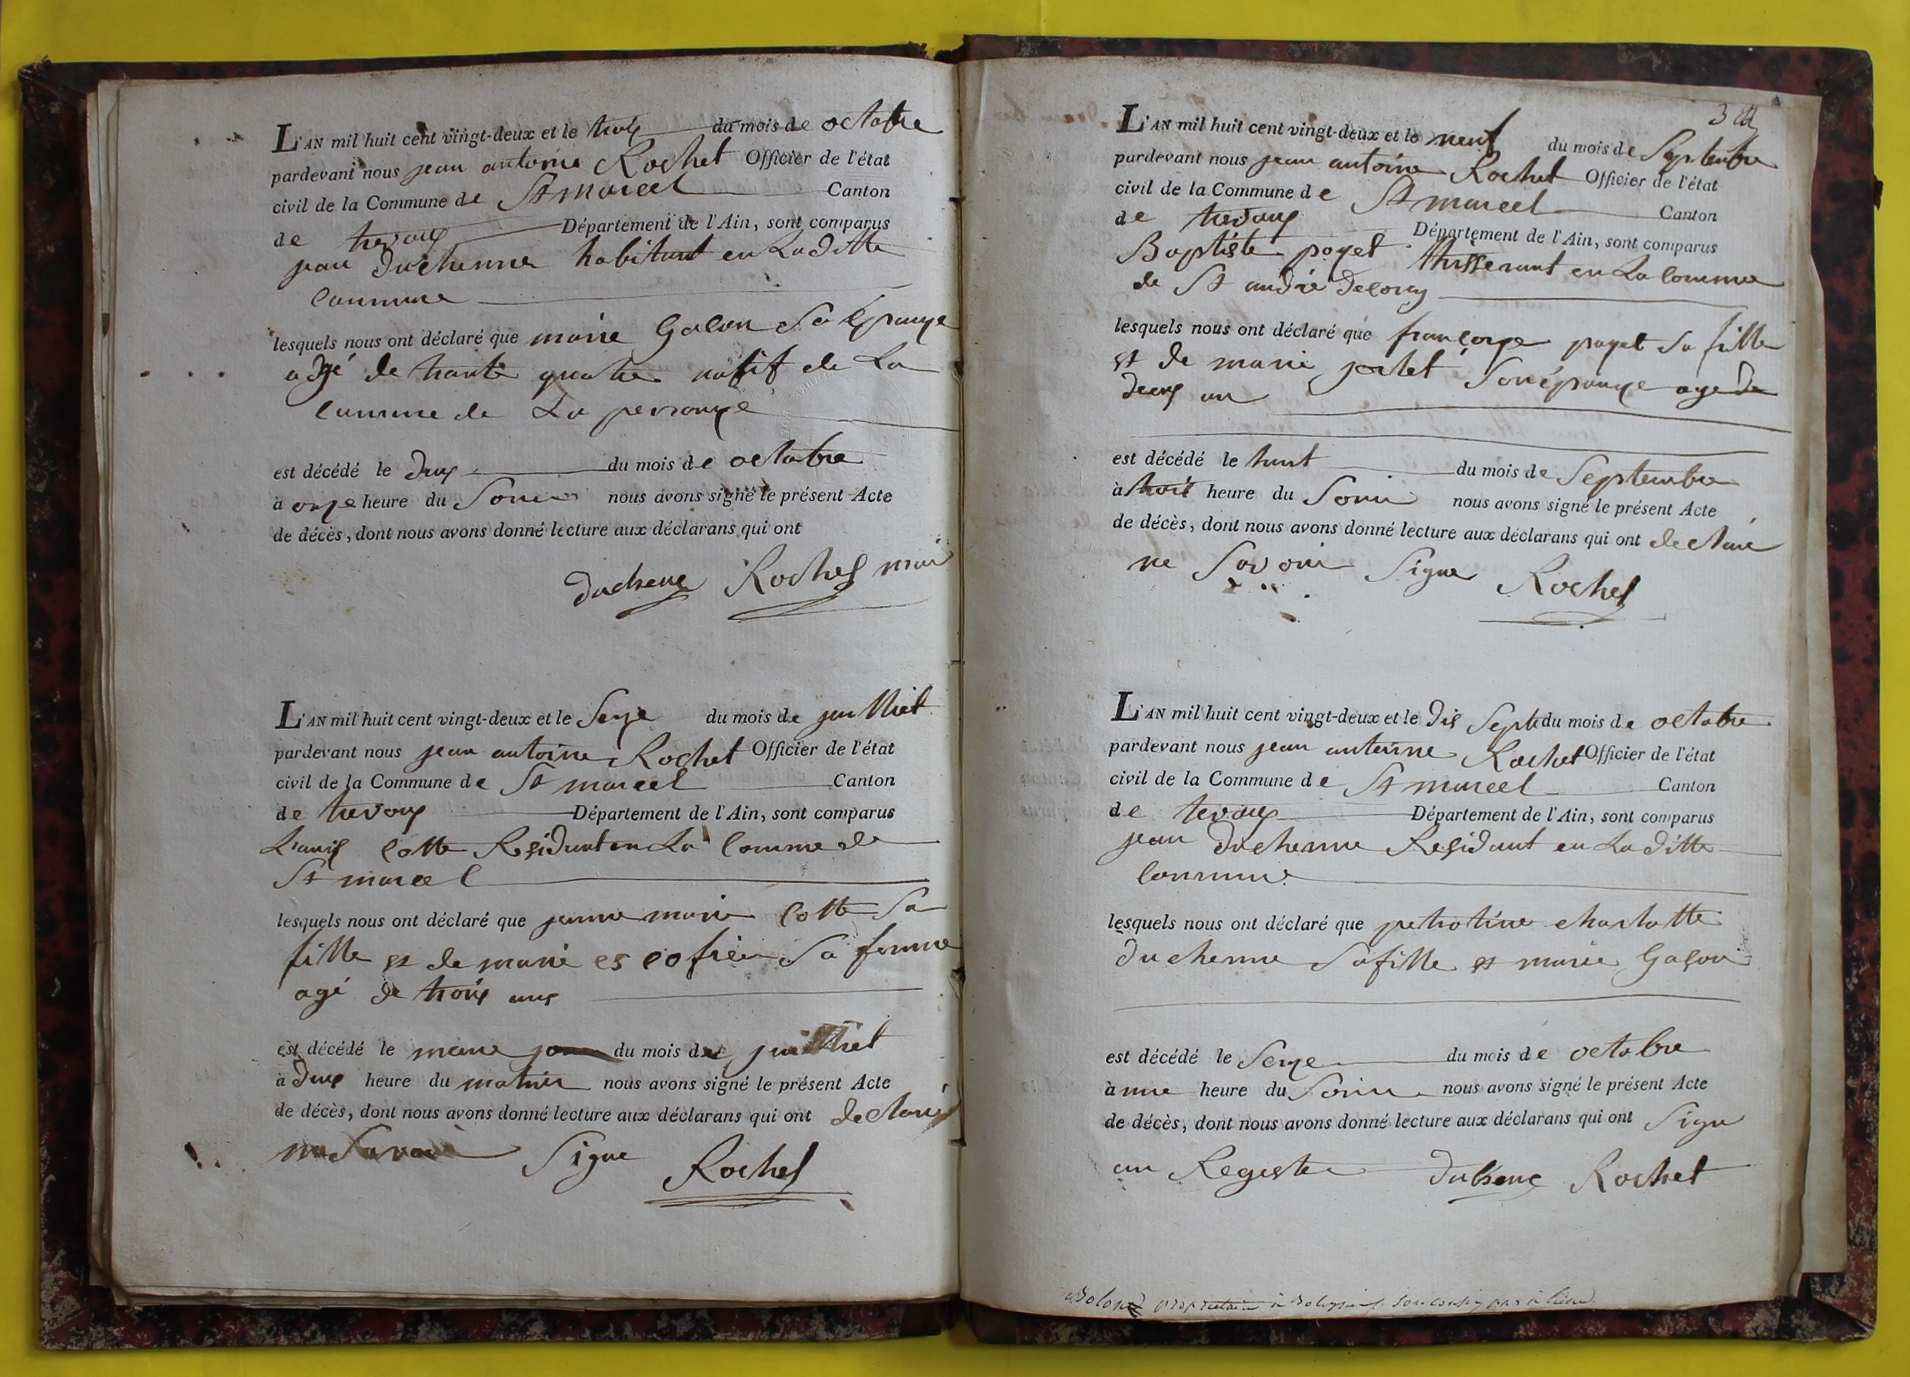 L'AN mil huit cent vingt-deux et le trois du mois de octobre
pardevant nous jean antoine Rochet Officier de l'état
civil de la Commune de St marcel Canton
de trevoux Département de l'Ain, sont comparus
jean duchenne habitant en La ditte
commune
lesquels nous ont déclaré que marie Gaçon sa Epouze
agé de trante quatre natif de La
cummune de La peyrouze
est décédé le deux du mois de octobre
à onze heure du Soire nous avons signé le présent Acte
de décès, dont nous avons donné lecture aux déclarans qui ont
duchene Rochet mair
L'AN mil huit cent vingt-deux et le Seize du mois de juilliet
pardevant nous jean antoine Rochet Officier de l'état
civil de la Commune de St marcel Canton
de trevoux Département de l'Ain, sont comparus
Louis Cotte Residant en La Comme de
St marcel
lesquels nous ont déclaré que jeanne marie Cotte Sa
fille et de marie escofier Sa femme
agé de trois ans
est décédé le meme jour du mois de juilliet
à deux heure du matin nous avons signé le présent Acte
de décès, dont nous avons donné lecture aux déclarans qui ont declaré
ne Savoir Signe Rochet
L'AN mil huit cent vingt-deux et le neuf du mois de Septembre
pardevant nous jean antoine Rochet Officier de l'état
civil de la Commune de St marcel Canton
de trevoux Département de l'Ain, sont comparus
Baptiste poyet thisserant en La Commue
de St andré decorcy
lesquels nous ont déclaré que françoize payet Sa fille
et de marie Son épouze age de
deux an
est décédé le huit du mois de Septembre
à trois heure du Soire nous avons signé le présent Acte
de décès, dont nous avons donné lecture aux déclarans qui ont declaré
ne Savoir Signe Rochet
L'AN mil huit cent vingt-deux et le dis Sept du mois de octobre
pardevant nous jean antoine Rochet Officier de l'état
civil de la Commune de St marcel Canton
de trevoux Département de l'Ain, sont comparus
jean duchenne Residant en La ditte
Commune
lesquels nous ont déclaré que charlotte
duchenne Sa fille et marie Gaçon
est décédé le Seize du mois de octobre
à une heure du Soire nous avons signé le présent Acte
de décès, dont nous avons donné lecture aux déclarans qui ont Signe
au Registre duchene Rochet